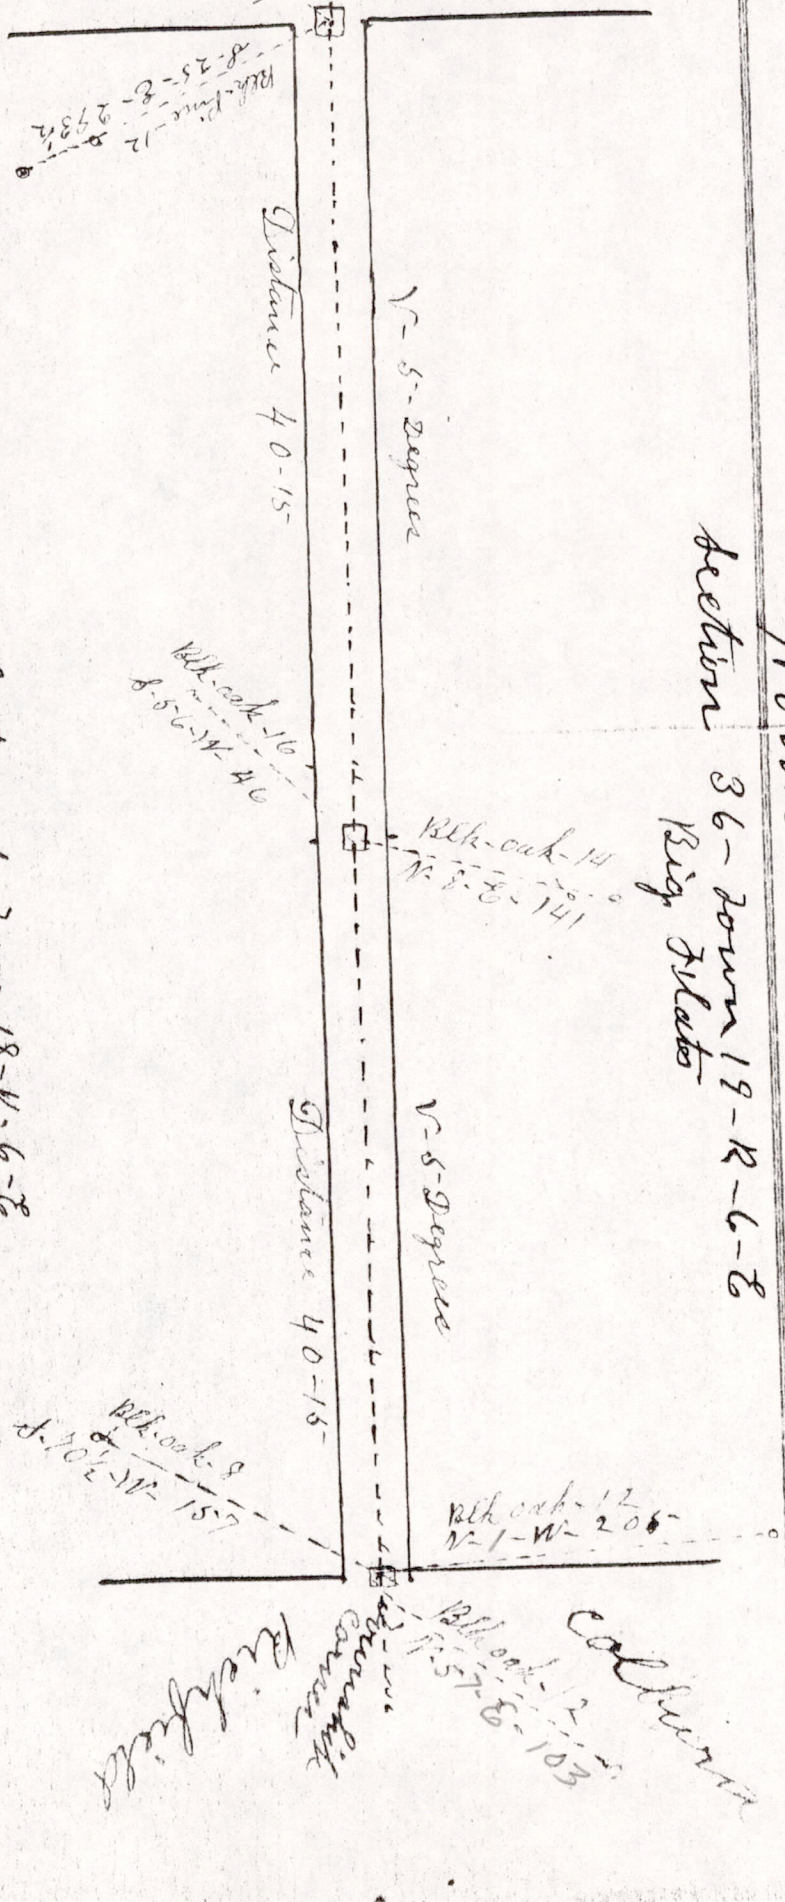 Section 36-Town 19-R-6-E
Big Flats
V-5-Degrees
V-5-Degrees
Distance 40-15
Distance 40-15
Blk-Pine-12
S-25-E-293½
Blk-oak-16
S-56-W-46
Blk-oak-14
N-8-E-141
Blk-oak-8
S-70½-W-157
Blk oak-12
N-1-W-205
Blk oak-12
N-57-E-103
Colburn
Richfield
18-R-6-E